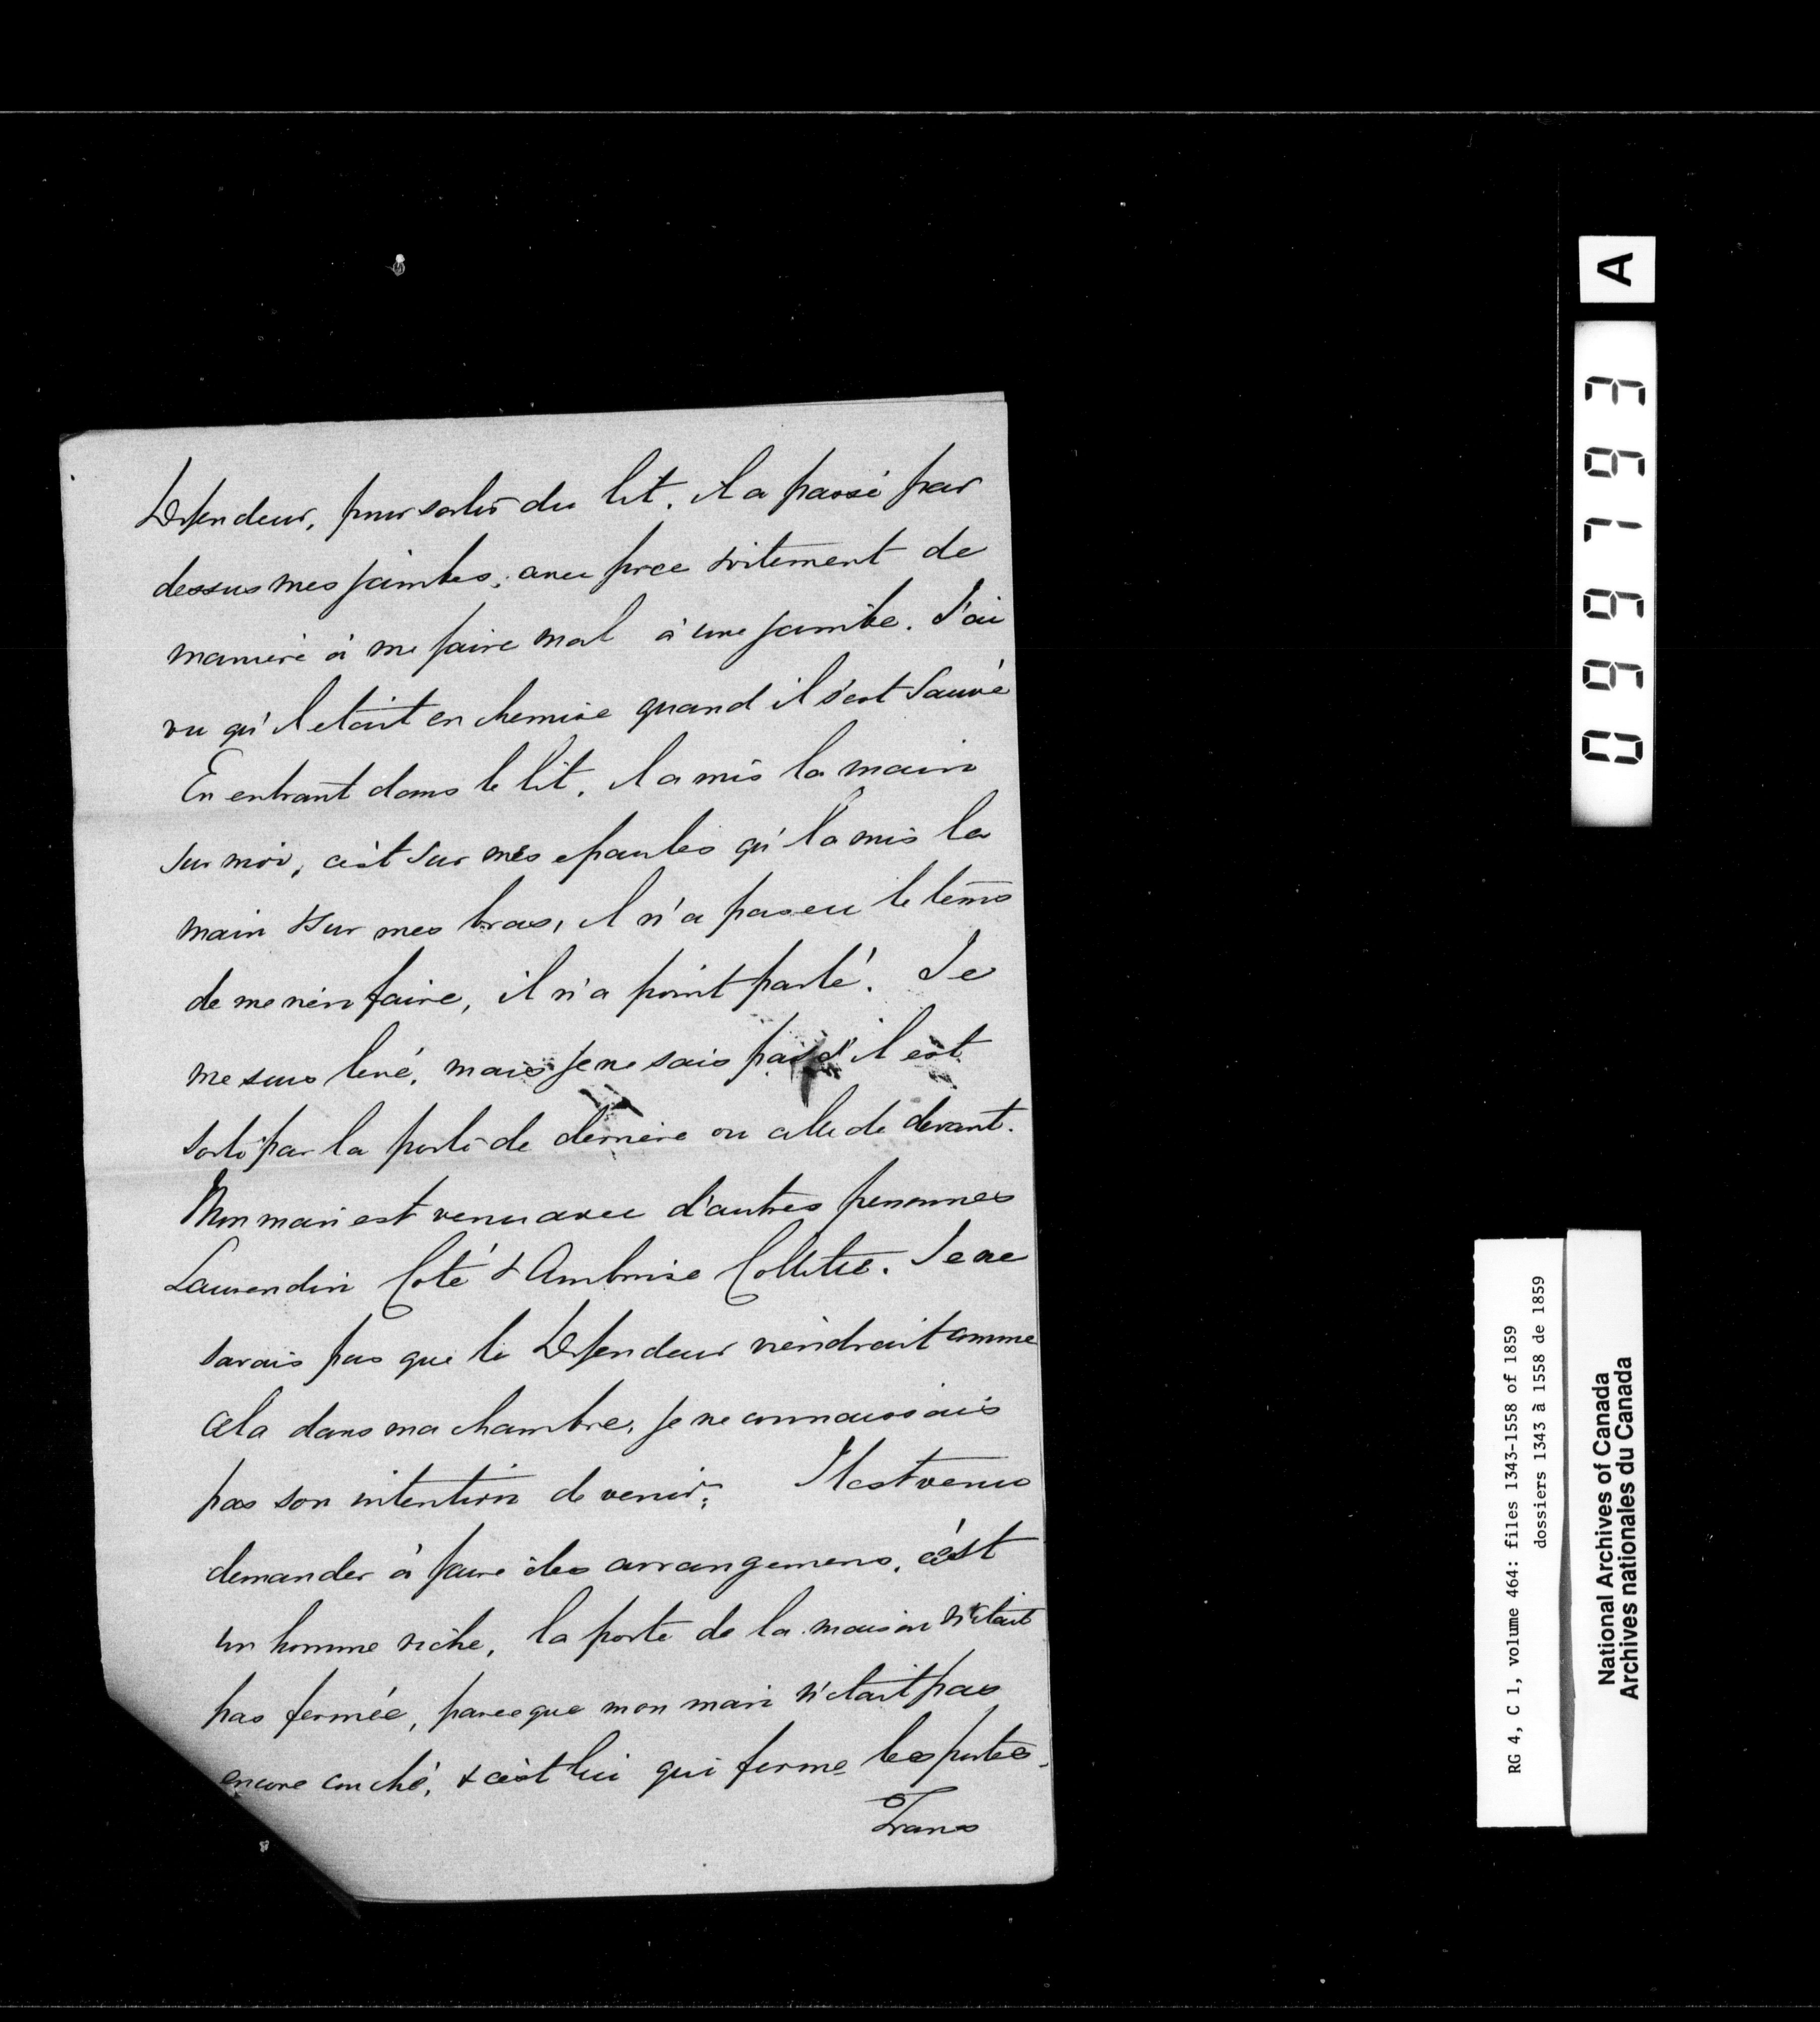 Defendeur, pour sortir du lit. il a passé par
dessus mes jambes, avec force vitement de
maniere à me faire mal à une jambe. J'ai
vu qu'il etait en chemise quand il s'est sauvé
En entrant dans le lit, il a mis la main
sur moi, c'est sur mes epaules qu'il a mis la
main & sur mes bras, il n'a pas eu le tems
de me rien faire, il n'a point parlé. Je
me suis levé, mais je ne sais pas s'il est
sorti par la porte de derriere ou celle de devant.
Mon mari est venu avec d'autres personnes
Laurendin Coté & Ambroise Collette. Je ne
savais pas que le Defendeur viendrait comme
cela dans ma chambre, je ne connaissais
pas son intention de venir; Il est venu
demander à faire des arrangemens, c'est
un homme riche, la porte de la maison n'etait
pas fermée, parce que mon mari n'etait pas
encore couché, & c'est lui qui ferme les portes.
Trans
A
099793
RG 4, C 1, volume 464: files 1343-1558 of 1859
dossiers 1343 à 1558 de 1859
National Archives of Canada
Archives nationales du Canada